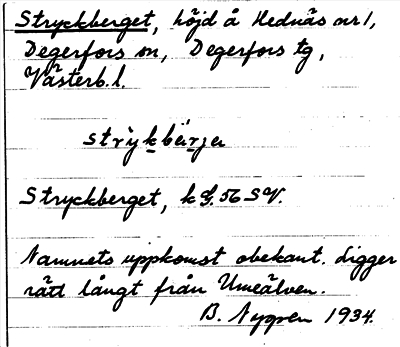 Stryckberget, höjd å Hednäs nr 1,
Degerfors sn, Degerfors tg,
Västerb. l.
strỳkbärjɐ
Stryckberget, k G. 56 SV.
Namnets uppkomst obekant. Ligger
rätt långt från Umeälven.
B. Nygren 1934.